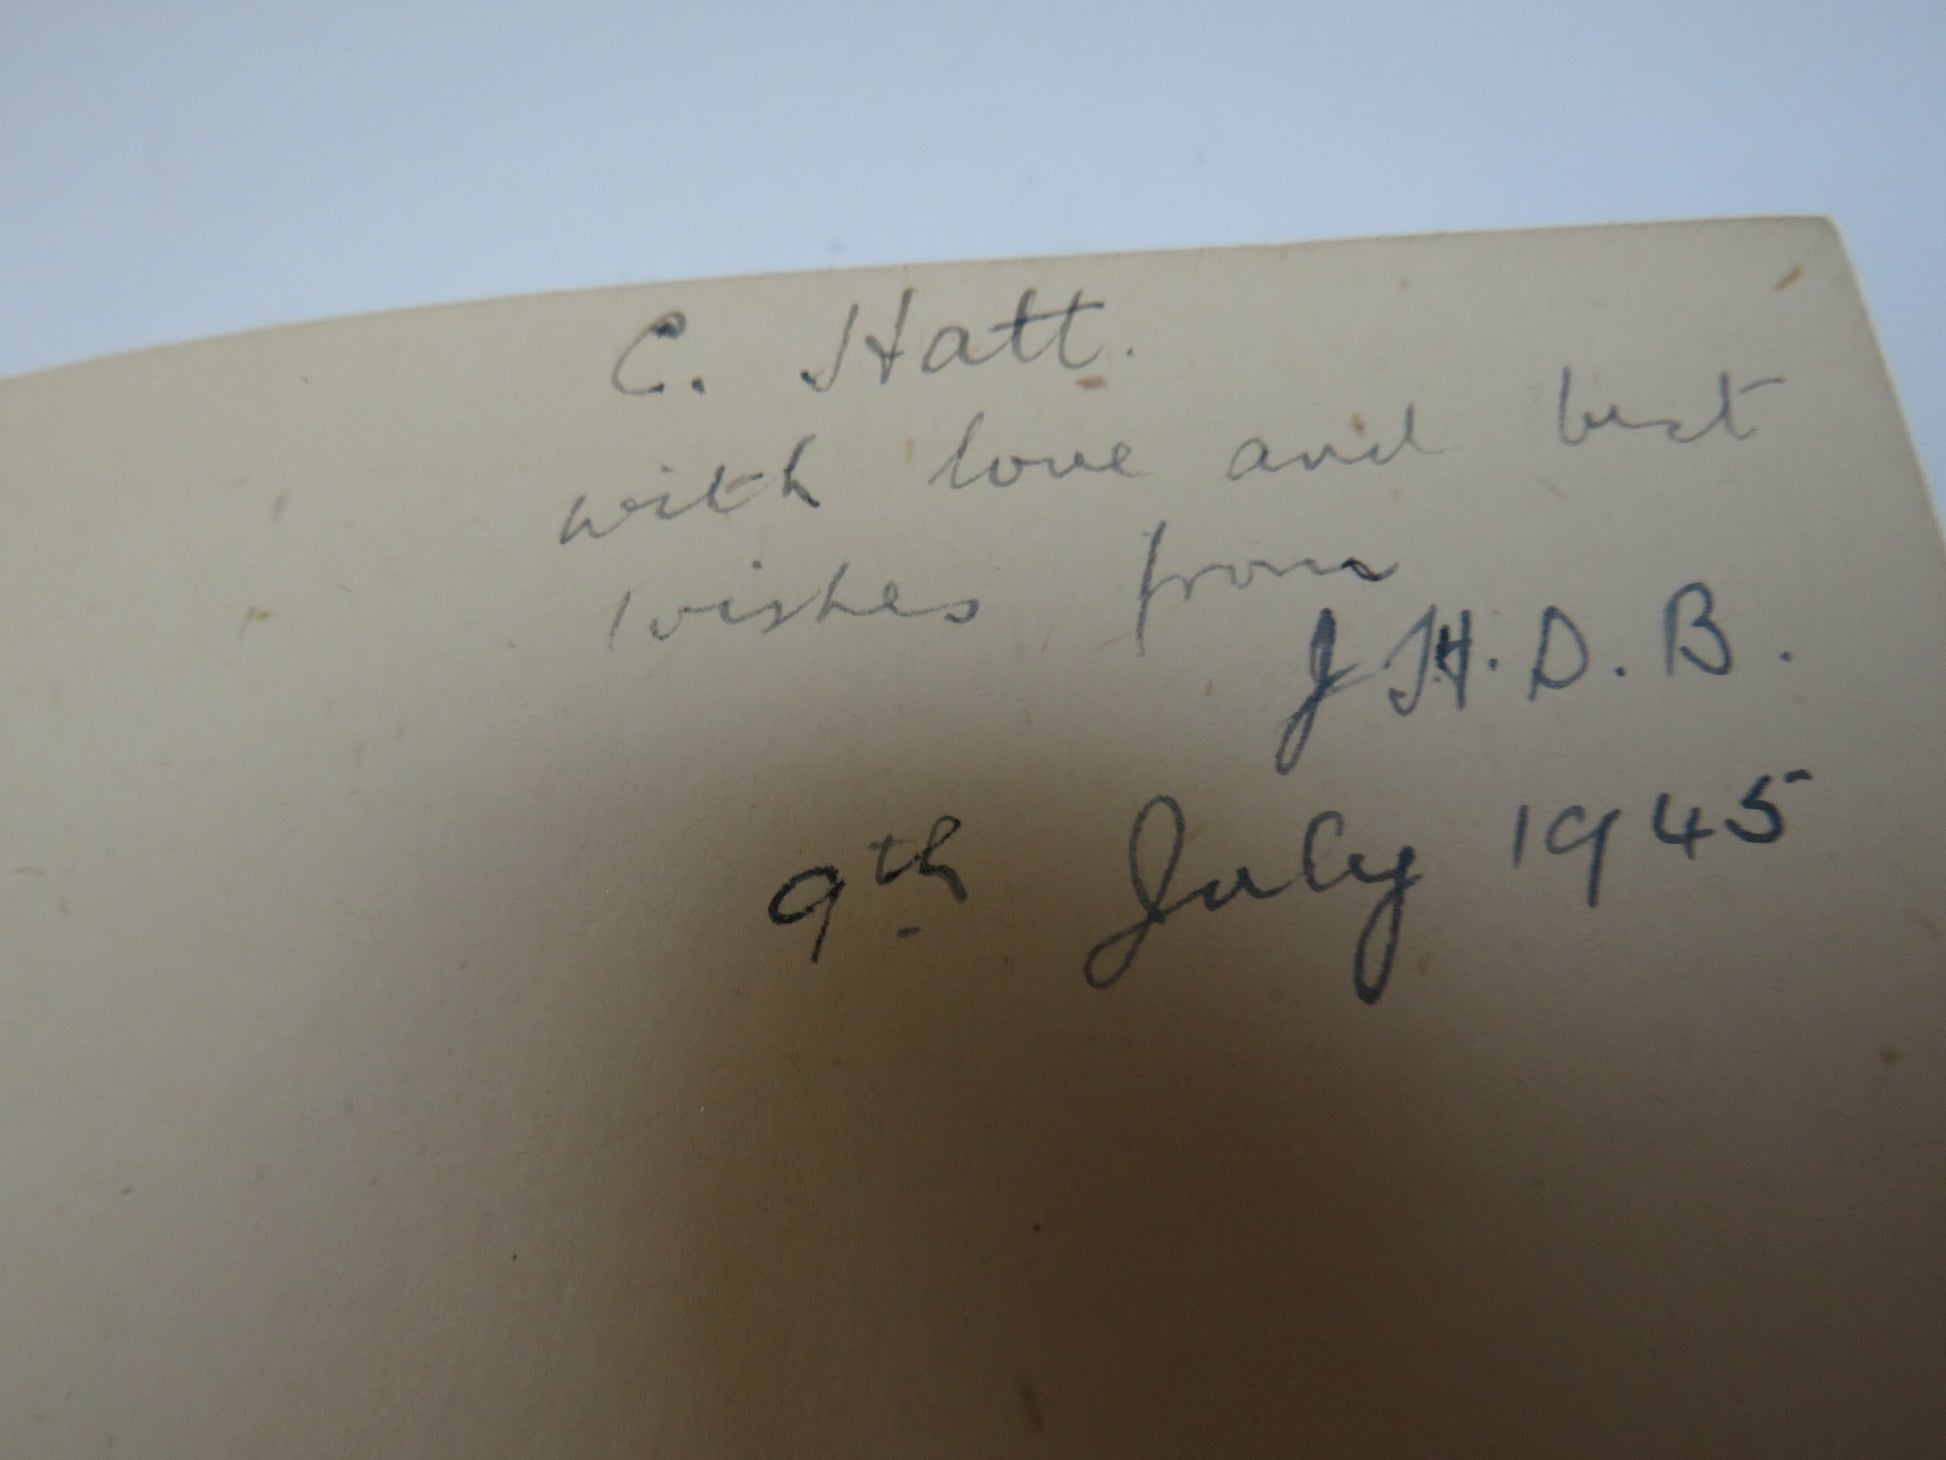 C. Hatt.
with love and best
wishes from
J.H.D.B.
9th July 1945